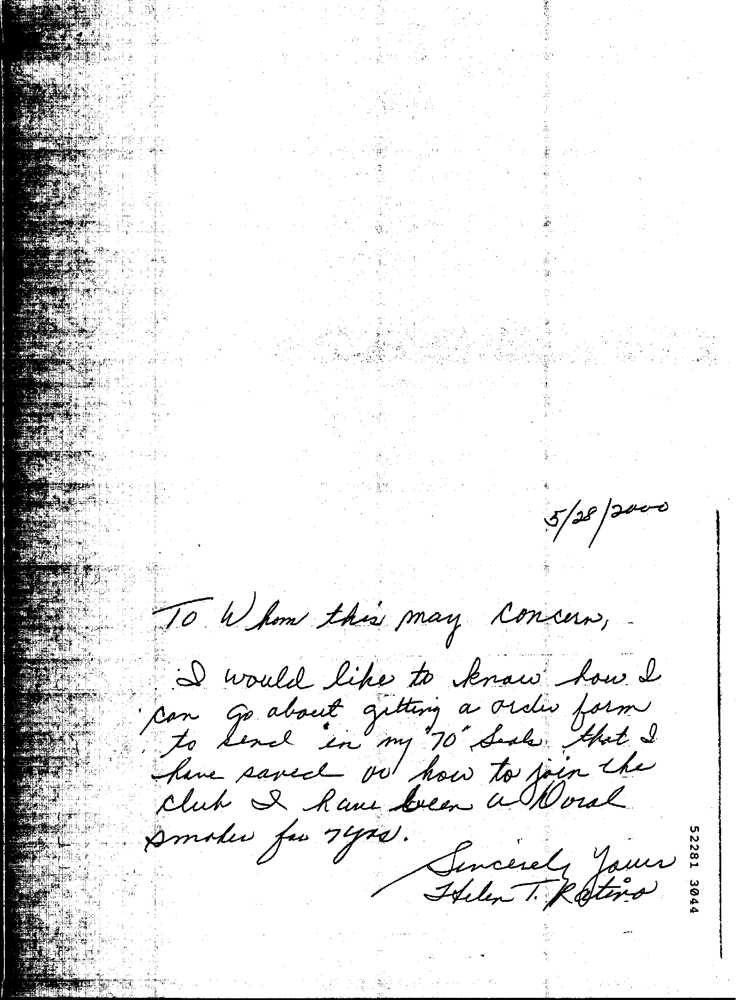 5/28/2000
To Whom this may concern,
I would like to know how I
can go about getting a order form
to send in my "70" Seals that I
have saved or how to join the
club I have been a Doral
smoker for 7 yrs.
Sincerely Yours
Helen T.
52281 3044